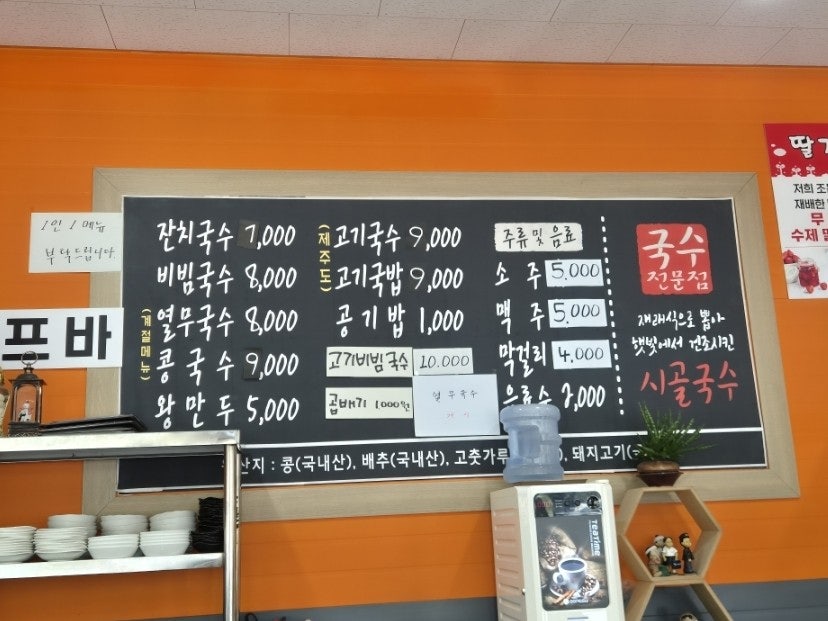 1인 1메뉴
부탁드립니다.
프바
잔치국수 7,000
비빔국수 8,000
(계절메뉴)
열무국수 8,000
콩국수 9,000
왕만두 5,000
(제주도)
고기국수 9,000
고기국밥 9,000
공기밥 1,000
고기비빔국수 10.000
곱배기 1,000원
열무국수
주류 및 음료
소주 5.000
맥주 5.000
막걸리 4.000
음료수 2,000
국수
전문점
재래식으로 뽑아
햇빛에서 건조시킨
시골국수
산지 : 콩(국내산), 배추(국내산), 고춧가루 ), 돼지고기(
딸
저희 조
재배한
무
수제 딸
TEATIME